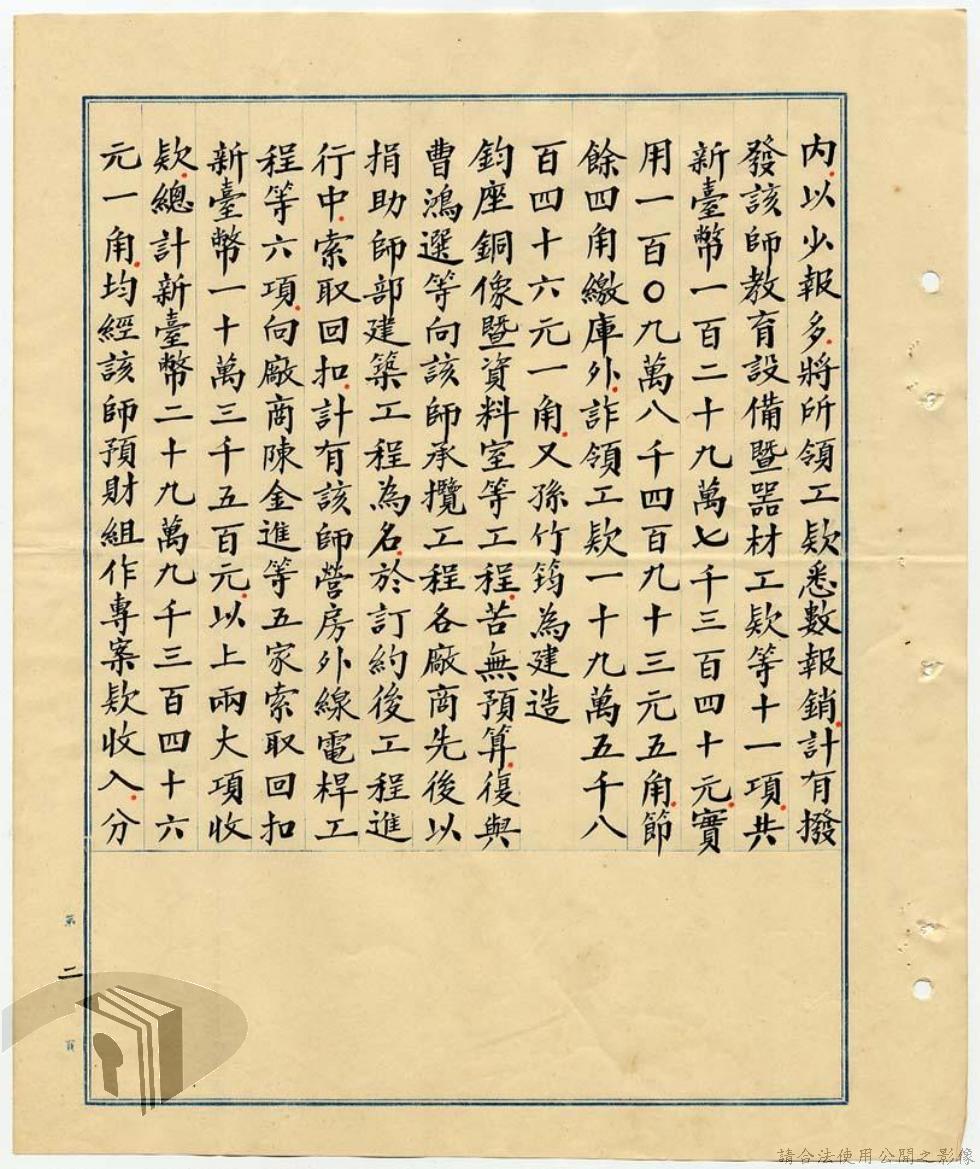 內以少報多將所領工欵悉數報銷計有撥
發該師教育設備暨器材工欵等十一項共
新臺幣一百二十九萬七千三百四十元實
用一百〇九萬八千四百九十三元五角節
餘四角繳庫外詐領工欵一十九萬五千八
百四十六元一角又孫竹筠為建造
鈞座銅像暨資料室等工程苦無預算復與
曹鴻選等向該師承攬工程各廠商先後以
捐助師部建築工程為名於訂約後工程進
行中索取回扣計有該師營房外線電桿工
程等六項向廠商陳金進等五家索取回扣
新臺幣一十萬三千五百元以上兩大項收
欵總計新臺幣二十九萬九千三百四十六
元一角均經該師預財組作專案欵收入分
第二頁
請合法使用公開之影像